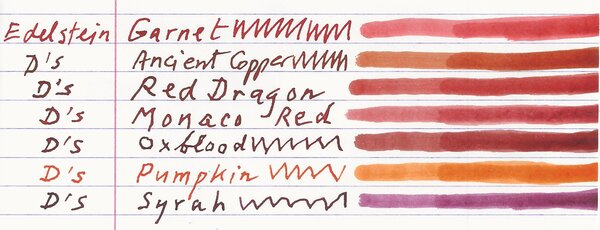 Edelstein Garnet
D's Ancient Copper
D's Red Dragon
D's Monaco Red
D's Oxblood
D's Pumpkin
D's Syrah